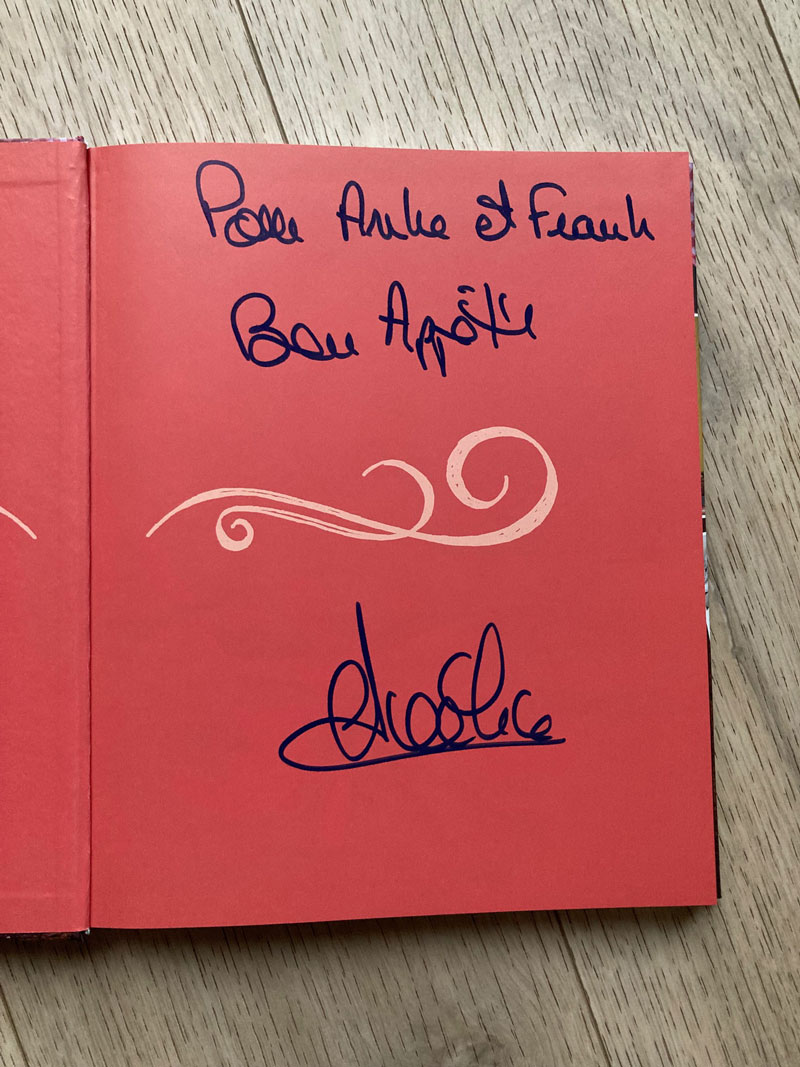 Pour Anke et Frank
Bon Appétit